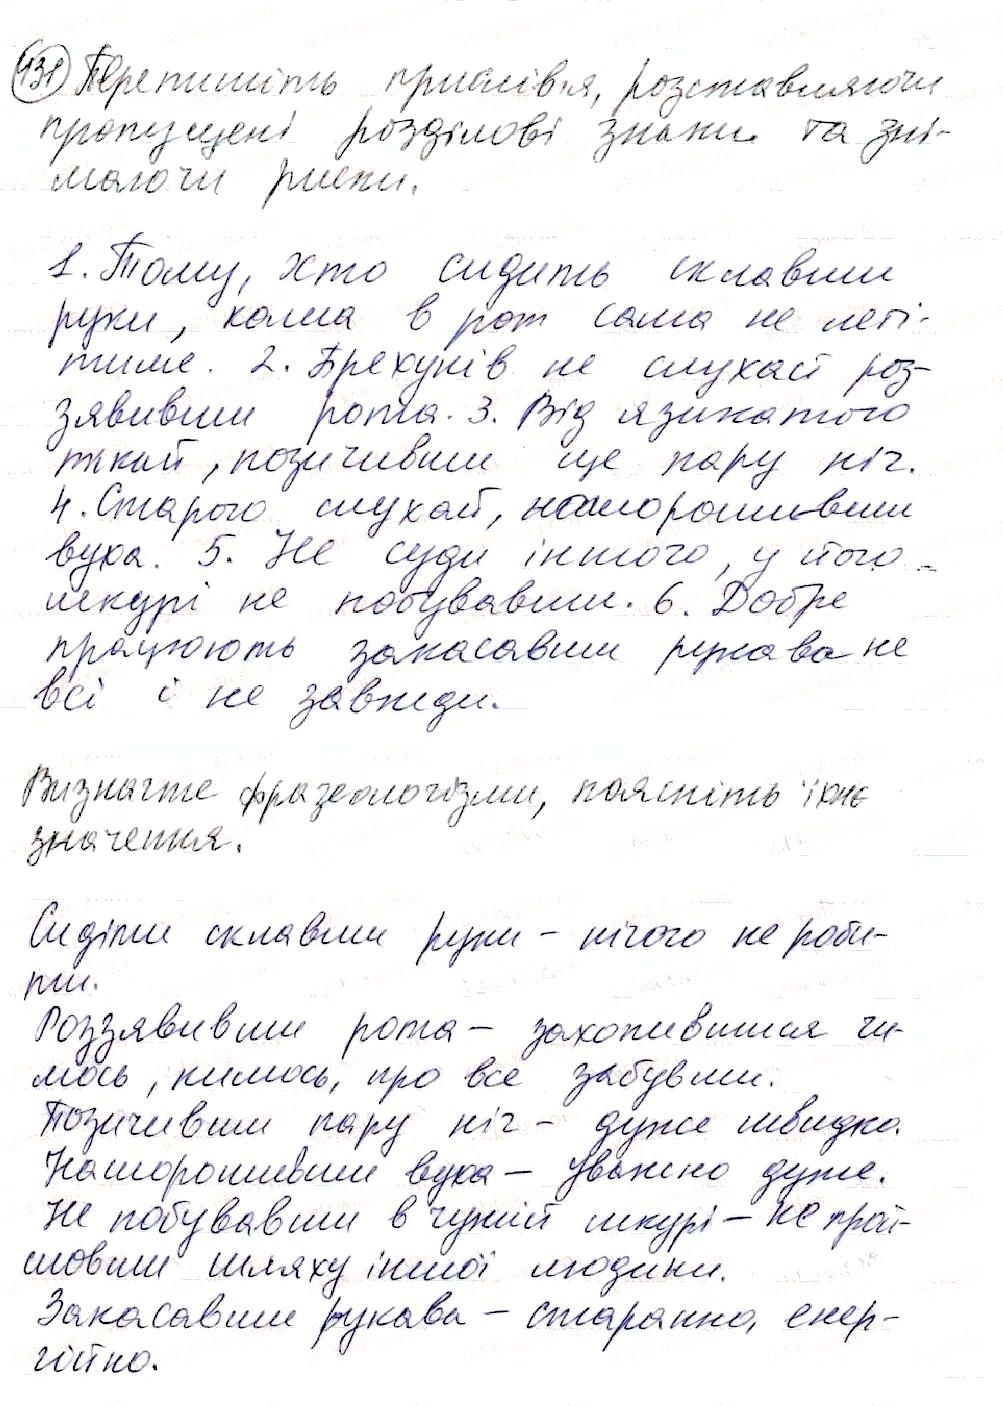 431 Перепишіть прислів'я, розставляючи
пропущені розділові знаки та зні-
маючи риски.
1. Тому, хто сидить склавши
руки, каша в рот сама не леті-
тиме. 2. Брехунів не слухай роз-
зявивши рота. 3. Від язикатого
тікай, позичивши ще пару ніг.
4. Старого слухай, нашорошивши
вуха. 5. Не суди іншого, у його
шкурі не побувавши. 6. Добре
працюють закасавши рукава не
всі і не завжди.
Визначте фразеологізми, поясніть їхнє
значення.
Сидіти склавши руки – нічого не роби-
ти.
Роззявивши рота – захопившися чи-
мось, кимось, про все забувши.
Позичивши пару ніг – дуже швидко.
Нашорошивши вуха – уважно дуже.
Не побувавши в чужій шкурі – не прой-
шовши шляху іншої людини.
Закасавши рукава – старанно, енер-
гійно.